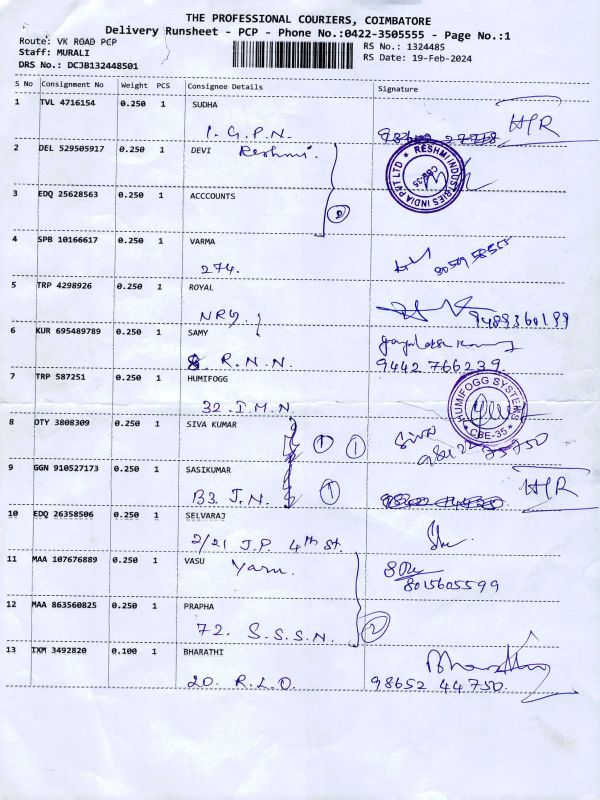 THE PROFESSIONAL COURIERS, COIMBATORE
Delivery Runsheet - PCP - Phone No.:0422-3505555 - Page No.:1
Route: VK ROAD PCP
Staff: MURALI
DRS No.: DCJB132448501
RS No.: 1324485
RS Date: 19-Feb-2024
S No Consignment No Weight PCS Consignee Details Signature
1 TVL 4716154 0.250 1 SUDHA
1. G.P.N. H/R
2 DEL 529505917 0.250 1 DEVI Reshmi.
RESHMI INDUSTRIES INDIA PVT LTD CBE-35
3 EDQ 25628563 0.250 1 ACCCOUNTS
2
4 SPB 10166617 0.250 1 VARMA
274.
5 TRP 4298926 0.250 1 ROYAL
NRY. 9489360199
6 KUR 695489789 0.250 1 SAMY
R.N.N. 9442 766239.
7 TRP 587251 0.250 1 HUMIFOGG
32. I.M.N.
HUMIFOGG SYSTEMS CBE-35
8 OTY 3808309 0.250 1 SIVA KUMAR
1 1 Siva
9 GGN 910527173 0.250 1 SASIKUMAR
B3. J.N. 1 H/R
10 EDQ 26358506 0.250 1 SELVARAJ
2/21 J.P. 4th St.
11 MAA 107676889 0.250 1 VASU Yarn.
8015605599
12 MAA 863560825 0.250 1 PRAPHA
72. S.S.S.N. 2
13 IXM 3492820 0.100 1 BHARATHI Bharathy
20. R.L.O. 98652 44750.